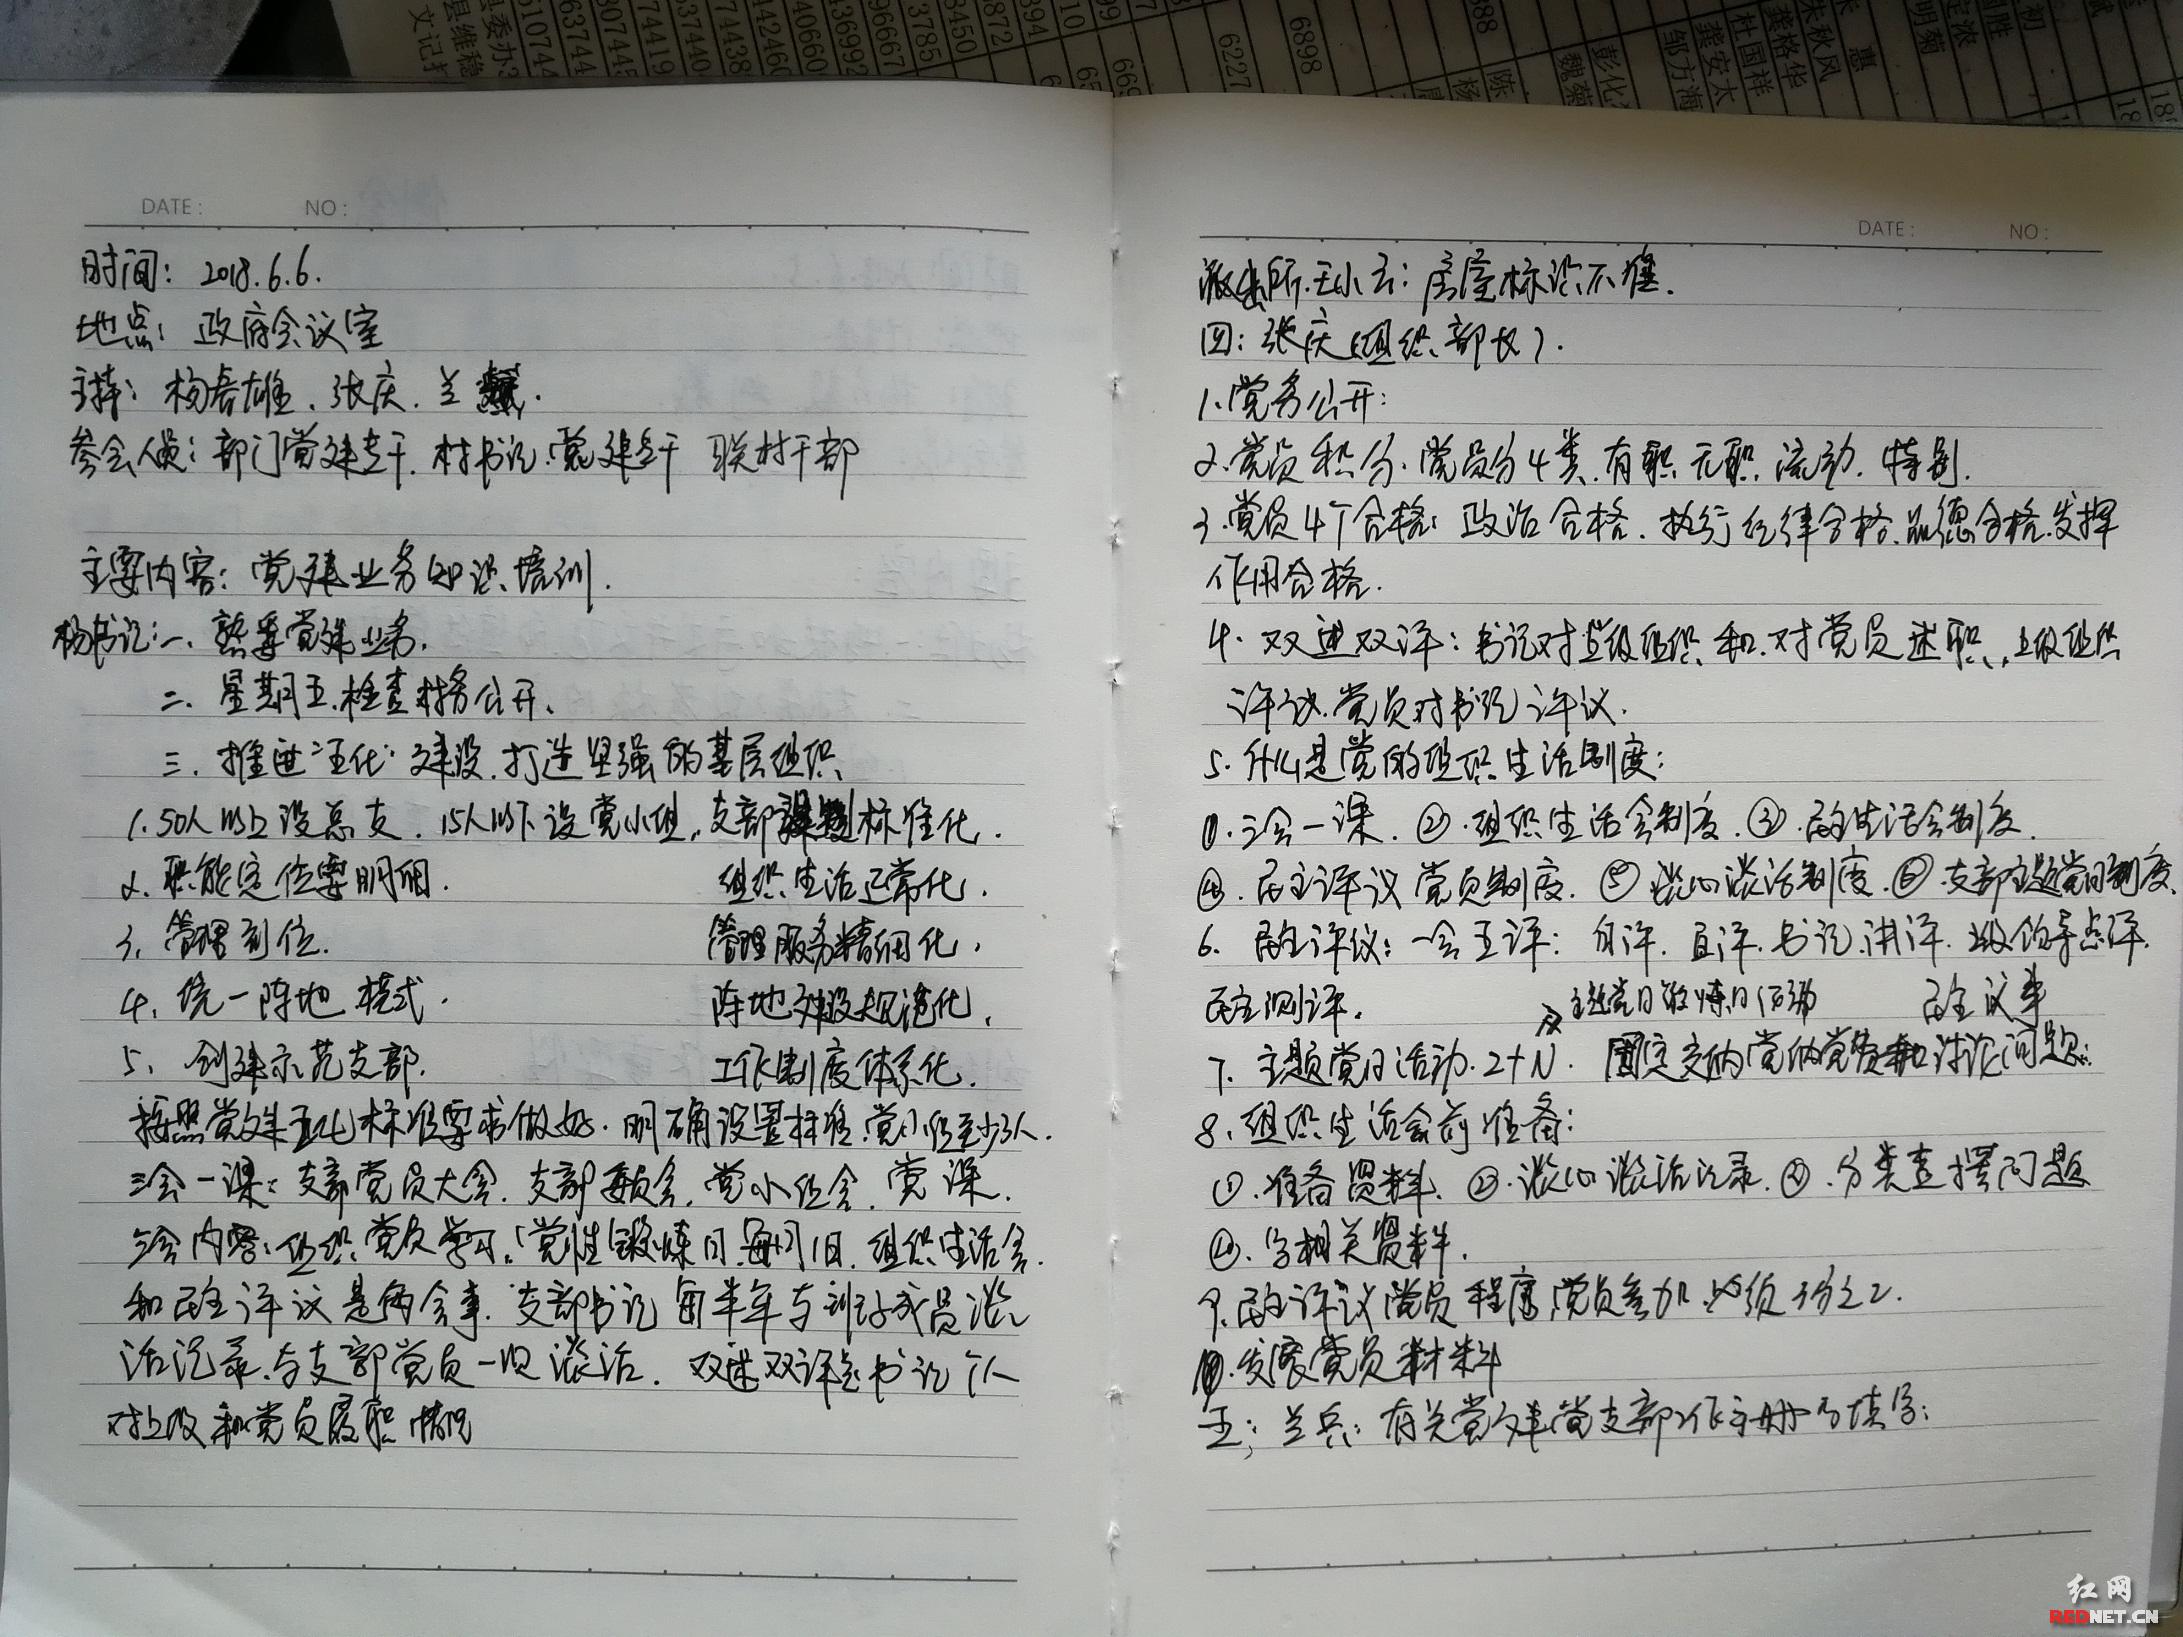 DATE: NO:
时间: 2018.6.6.
地点: 政府会议室
主持: 杨春雄. 张庆. 兰
参会人员: 部门党建专干. 村书记. 党建专干 联村干部
主要内容: 党建业务知识培训.
杨书记: 一. 熟悉党建业务.
二. 星期五检查村务公开.
三. 推进“五化”建设. 打造坚强的基层组织
1. 50人以上设总支. 15人以下设党小组, 支部 标准化.
2. 职能定位要明细. 组织生活正常化.
3. 管理到位. 管理服务精细化.
4. 统一阵地模式. 阵地建设规范化.
5. 创建示范支部. 工作制度体系化.
按照党建五化标准要求做好. 明确设置标准. 党小组至少3人.
三会一课: 支部党员大会. 支部委员会. 党小组会. 党课.
三会内容: 组织党员学习. 党性锻炼日每月1日. 组织生活会.
和民主评议是两会事. 支部书记每半年与班子成员谈
话记录. 与支部党员一次谈话. 双述双评是书记个人
对上级和党员履职情况
DATE: NO:
派出所. 王小云: 房屋标识不准.
四: 张庆(组织部长).
1. 党务公开:
2. 党员积分. 党员分4类. 有职 无职. 流动. 特别.
3. 党员4个合格: 政治合格. 执行纪律合格. 品德合格. 发挥
作用合格.
4. 双述双评: 书记对上级组织和对党员述职. 上级组织
评议. 党员对书记评议.
5. 什么是党的组织生活制度:
①. 三会一课. ②. 组织生活会制度. ③. 民主生活会制度.
④. 民主评议党员制度. ⑤ 谈心谈话制度. ⑥ 支部主题党日制度.
6. 民主评议: 一会五评: 自评. 互评. 书记讲评. 上级领导点评.
民主测评. 主题党日 炼日 民主议事
7. 主题党日活动. 2+N. 固定交纳党 党费和讨论问题.
8. 组织生活会前准备:
①. 准备资料. ②. 谈心谈话记录. ③. 分类查摆问题
④. 写相关资料.
9. 民主评议党员程序. 党员参加必须3分之2.
10. 发展党员材料
五: 兰兵: 有关党建党支部工作手册的填写:
红网
REDNET.CN
惠
朱秋风
龚格华
杜国祥
龚安太
邹方海
明菊
6898
6227